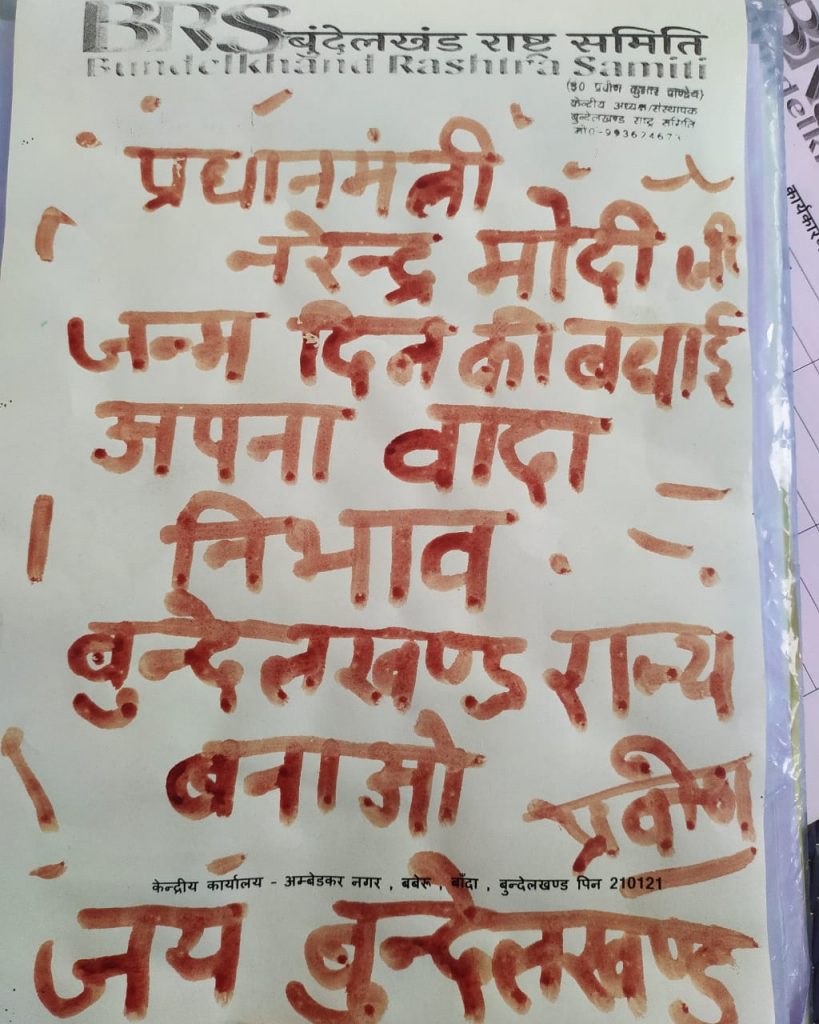 BRS बुंदेलखंड राष्ट्र समिति
Bundelkhand Rashtra Samiti
(डॉ प्रवीण कुमार पाण्डेय)
केन्द्रीय अध्यक्ष/संस्थापक
बुन्देलखण्ड राष्ट्र समिति
प्रधानमंत्री
नरेन्द्र मोदी जी
जन्म दिन की बधाई
अपना वादा
निभाव
बुन्देलखण्ड राज्य
बनाओ
प्रवीण
केन्द्रीय कार्यालय - अम्बेडकर नगर , बबेरू , बाँदा , बुन्देलखण्ड पिन 210121
जय बुन्देलखण्ड